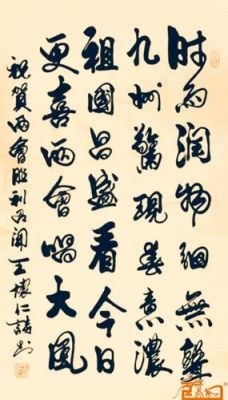 时雨润物細無聲
九州驚現春意濃
祖國昌盛看今日
更喜兩會唱大風
祝賀兩會勝利召開 王懷仁